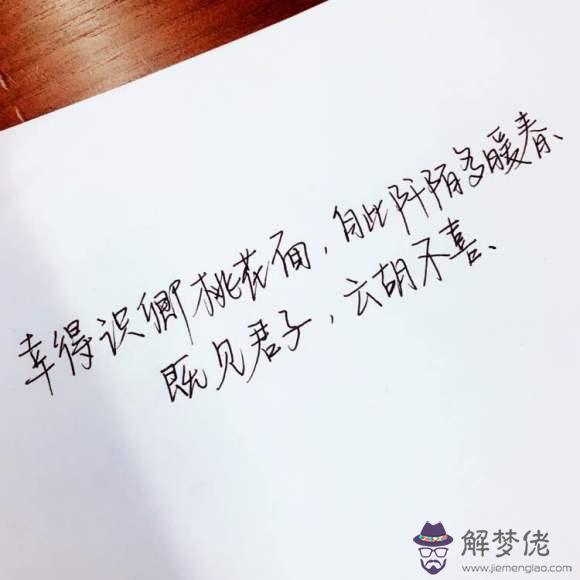 幸得识卿桃花面，自此阡陌多暖春、
既见君子，云胡不喜、
解梦佬
www.jiemenglao.com